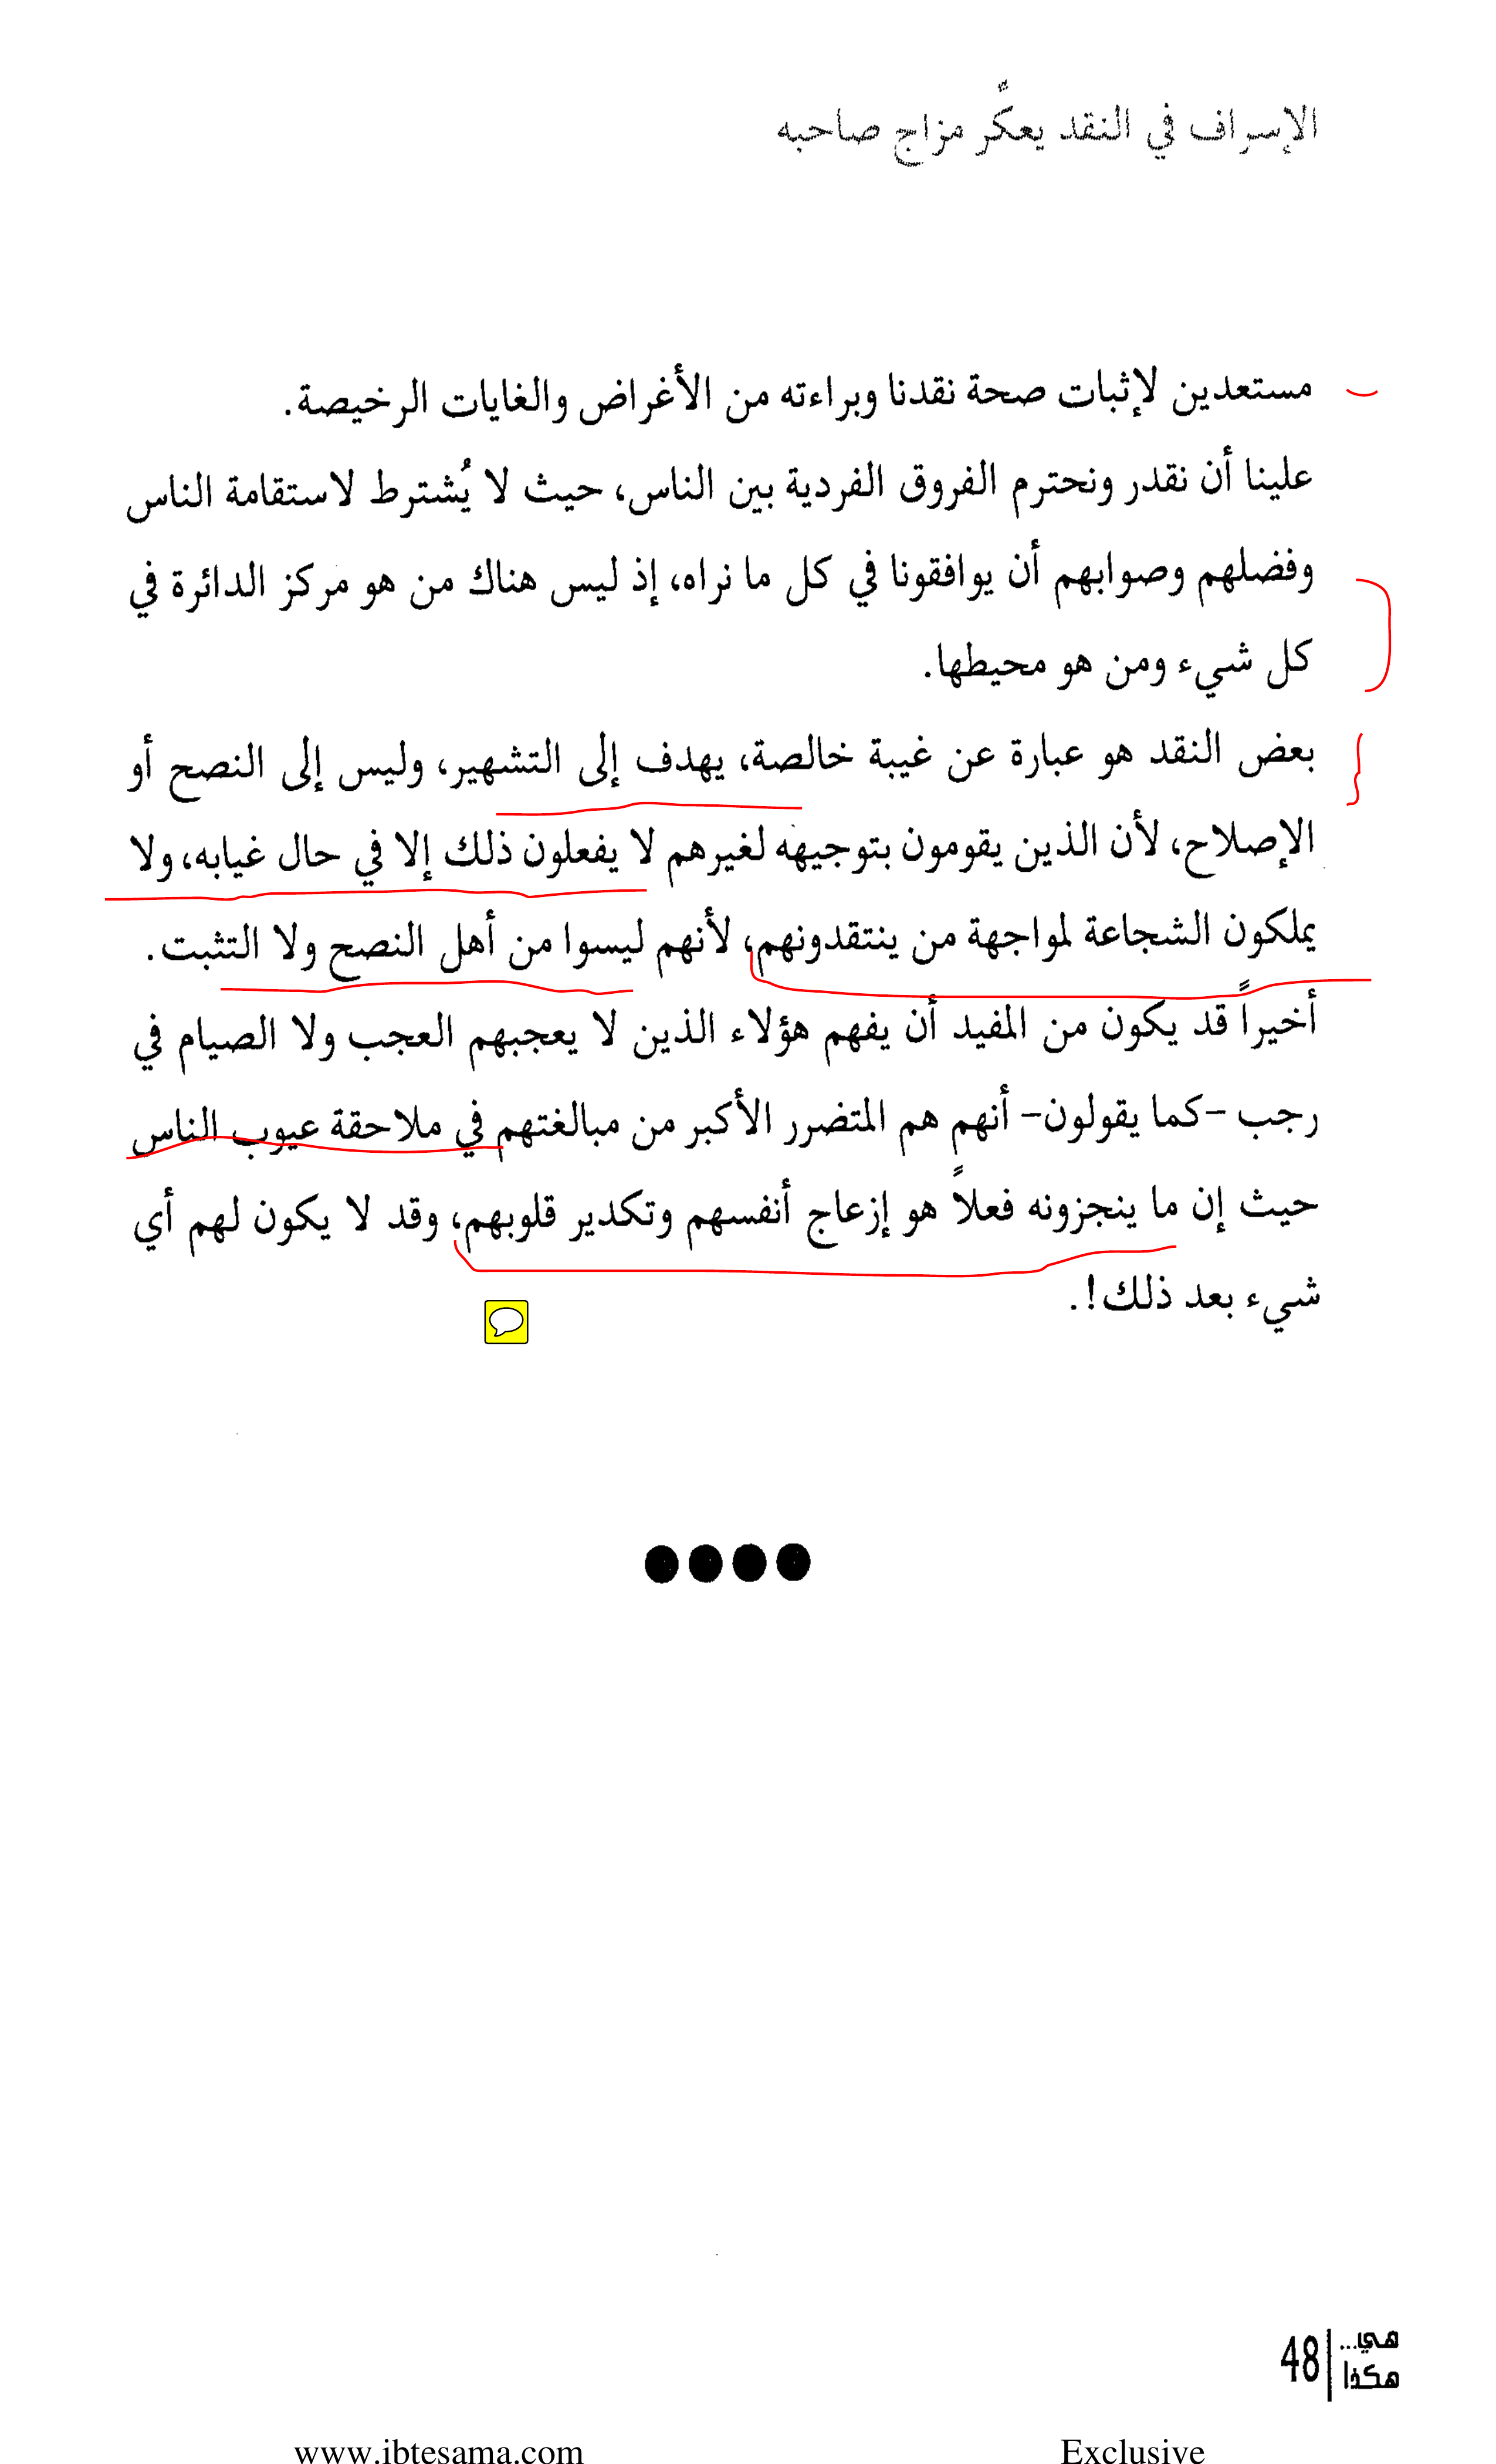 الإسراف في النقد يعكّر مزاج صاحبه
مستعدين لإثبات صحة نقدنا وبراءته من الأغراض والغايات الرخيصة.
علينا أن نقدر ونحترم الفروق الفردية بين الناس، حيث لا يُشترط لاستقامة الناس
وفضلهم وصوابهم أن يوافقونا في كل ما نراه، إذ ليس هناك من هو مركز الدائرة في
كل شيء ومن هو محيطها.
بعض النقد هو عبارة عن غيبة خالصة، يهدف إلى التشهير، وليس إلى النصح أو
الإصلاح، لأن الذين يقومون بتوجيهه لغيرهم لا يفعلون ذلك إلا في حال غيابه، ولا
يملكون الشجاعة لمواجهة من ينتقدونهم، لأنهم ليسوا من أهل النصح ولا التثبت.
أخيراً قد يكون من المفيد أن يفهم هؤلاء الذين لا يعجبهم العجب ولا الصيام في
رجب -كما يقولون- أنهم هم المتضرر الأكبر من مبالغتهم في ملاحقة عيوب الناس
حيث إن ما ينجزونه فعلاً هو إزعاج أنفسهم وتكدير قلوبهم، وقد لا يكون لهم أي
شيء بعد ذلك!.
هي...
هكذا
48
www.ibtesama.com Exclusive